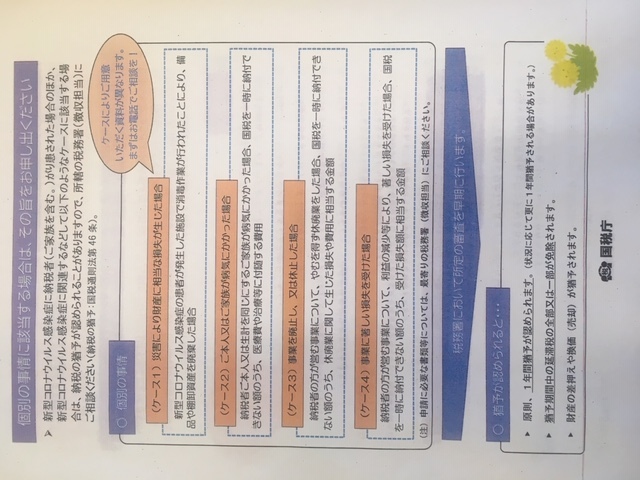 個別の事情に該当する場合は、その旨をお申し出ください
➤ 新型コロナウイルス感染症に納税者(ご家族を含む。)がり患された場合のほか、
新型コロナウイルス感染症に関連するなどして以下のようなケースに該当する場
合は、納税の猶予が認められることがありますので、所轄の税務署(徴収担当)に
ご相談ください(納税の猶予:国税通則法第46条)。
ケースによりご用意
いただく資料が異なります。
まずはお電話でご相談を!
○ 個別の事情
(ケース1)災害により財産に相当な損失が生じた場合
新型コロナウイルス感染症の患者が発生した施設で消毒作業が行われたことにより、備
品や棚卸資産を廃棄した場合
(ケース2)ご本人又はご家族が病気にかかった場合
納税者ご本人又は生計を同じにするご家族が病気にかかった場合、国税を一時に納付で
きない額のうち、医療費や治療等に付随する費用
(ケース3)事業を廃止し、又は休止した場合
納税者の方が営む事業について、やむを得ず休廃業をした場合、国税を一時に納付でき
ない額のうち、休廃業に関して生じた損失や費用に相当する金額
(ケース4)事業に著しい損失を受けた場合
納税者の方が営む事業について、利益の減少等により、著しい損失を受けた場合、国税
を一時に納付できない額のうち、受けた損失額に相当する金額
(注) 申請に必要な書類等については、最寄りの税務署(徴収担当)にご相談ください。
税務署において所定の審査を早期に行います。
○ 猶予が認められると・・・
➤ 原則、1年間猶予が認められます。(状況に応じて更に1年間猶予される場合があります。)
➤ 猶予期間中の延滞税の全部又は一部が免除されます。
➤ 財産の差押えや換価(売却)が猶予されます。
国税庁